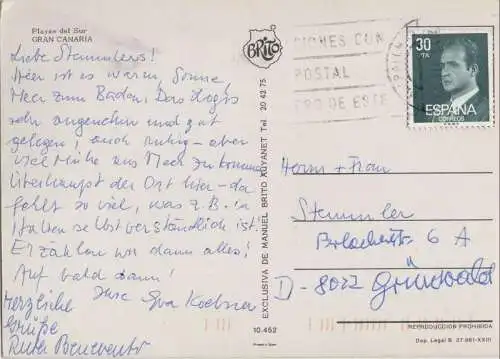 Playas del Sur
GRAN CANARIA
Liebe Stemmlers!
Hier ist es warm, Sonne
Meer zum Baden, Das Logis
sehr angenehm und gut
gelegen, auch ruhig - aber
viel Mühe zum Meer zu kommen
Überhaupt der Ort hier - da
fehlt so viel, was z.B. in
Italien selbstverständlich ist.
Erzählen wir dann alles!
Auf bald dann!
Ihre Eva
Herzliche
Grüße
BRITO
EXCLUSIVA DE MANUEL BRITO AUYANET Tel. 20 42 75
10.452
Printed in Spain
POSTAL
DE ESTE
30
PTA
ESPAÑA
CORREOS
Herrn + Frau
Stemmler
6 A
D-8022 Grünwald
REPRODUCCION PROHIBIDA
Dep. Legal B. 27.981-XXIII